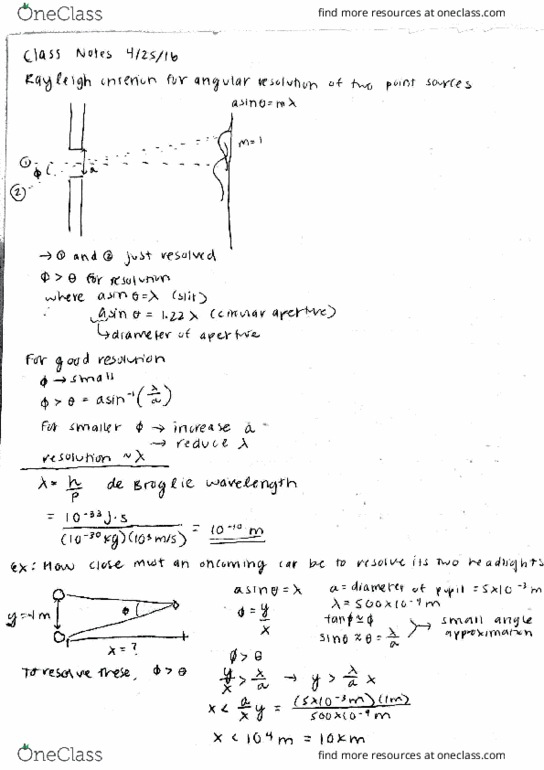 OneClass find more resources at oneclass.com
Class Notes 4/25/16
Rayleigh criterion for angular resolution of two point sources
a sinθ = mλ
m=1
① ϕ a
②
→ ① and ② just resolved
ϕ > θ for resolution
where a sin θ = λ (slit)
a sin θ = 1.22 λ (circular aperture)
↳ diameter of aperture
For good resolution
ϕ → small
ϕ > θ = a sin⁻¹ (λ/a)
For smaller ϕ → increase a
→ reduce λ
resolution ~ λ
λ = h/p de Broglie wavelength
= 10⁻³³ J·s / (10⁻³⁰ kg)(10⁸ m/s) = 10⁻¹⁰ m
Ex: How close must an oncoming car be to resolve its two headlights
a sin θ = λ a = diameter of pupil = 5×10⁻³ m
λ = 500×10⁻⁹ m
y=1m θ ϕ = y/x tan ϕ ≈ ϕ small angle
sin θ ≈ θ = λ/a approximation
x = ?
ϕ > θ
To resolve these, ϕ > θ y/x > λ/a → y > λ/a x
x < a/λ y = (5×10⁻³ m)(1m) / 500×10⁻⁹ m
x < 10⁴ m = 10 km
OneClass find more resources at oneclass.com